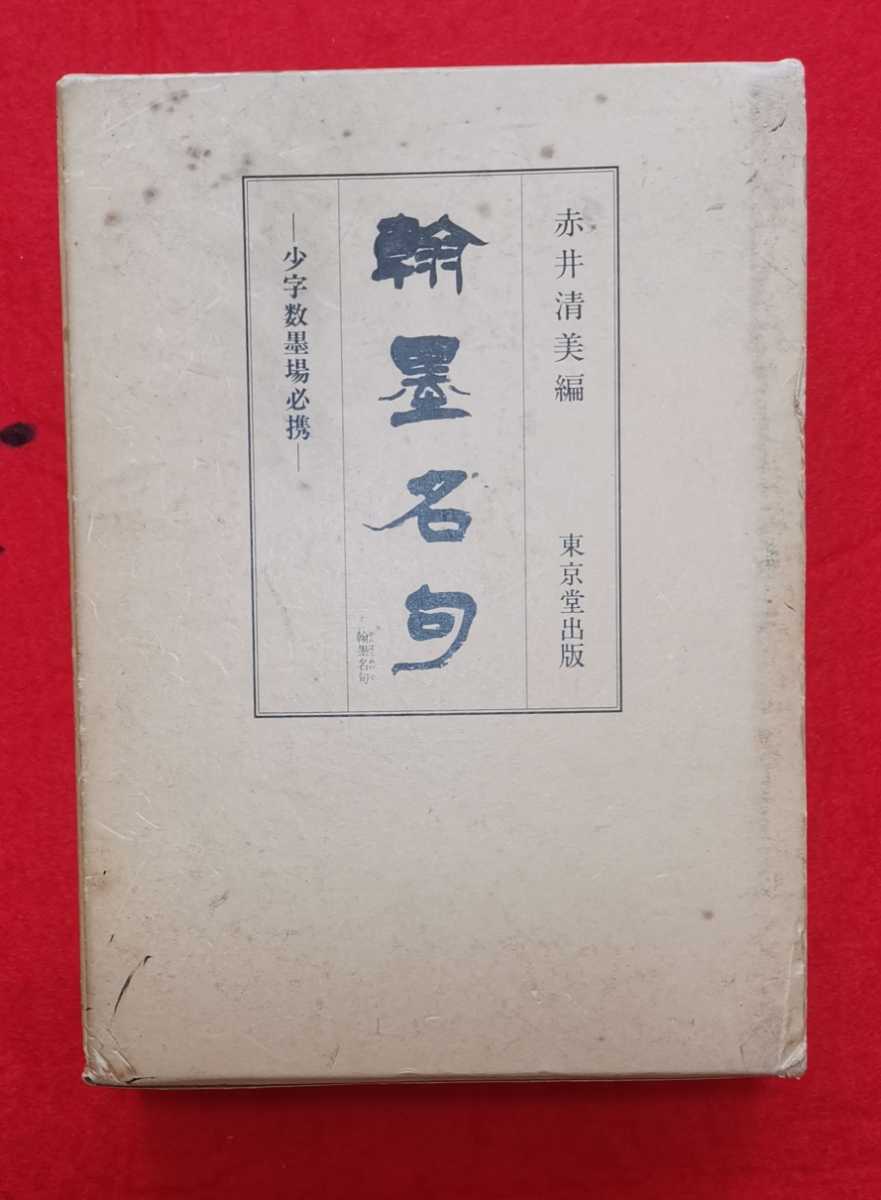 赤井清美編 東京堂出版
翰墨名句
翰墨名句
―少字数墨場必携―